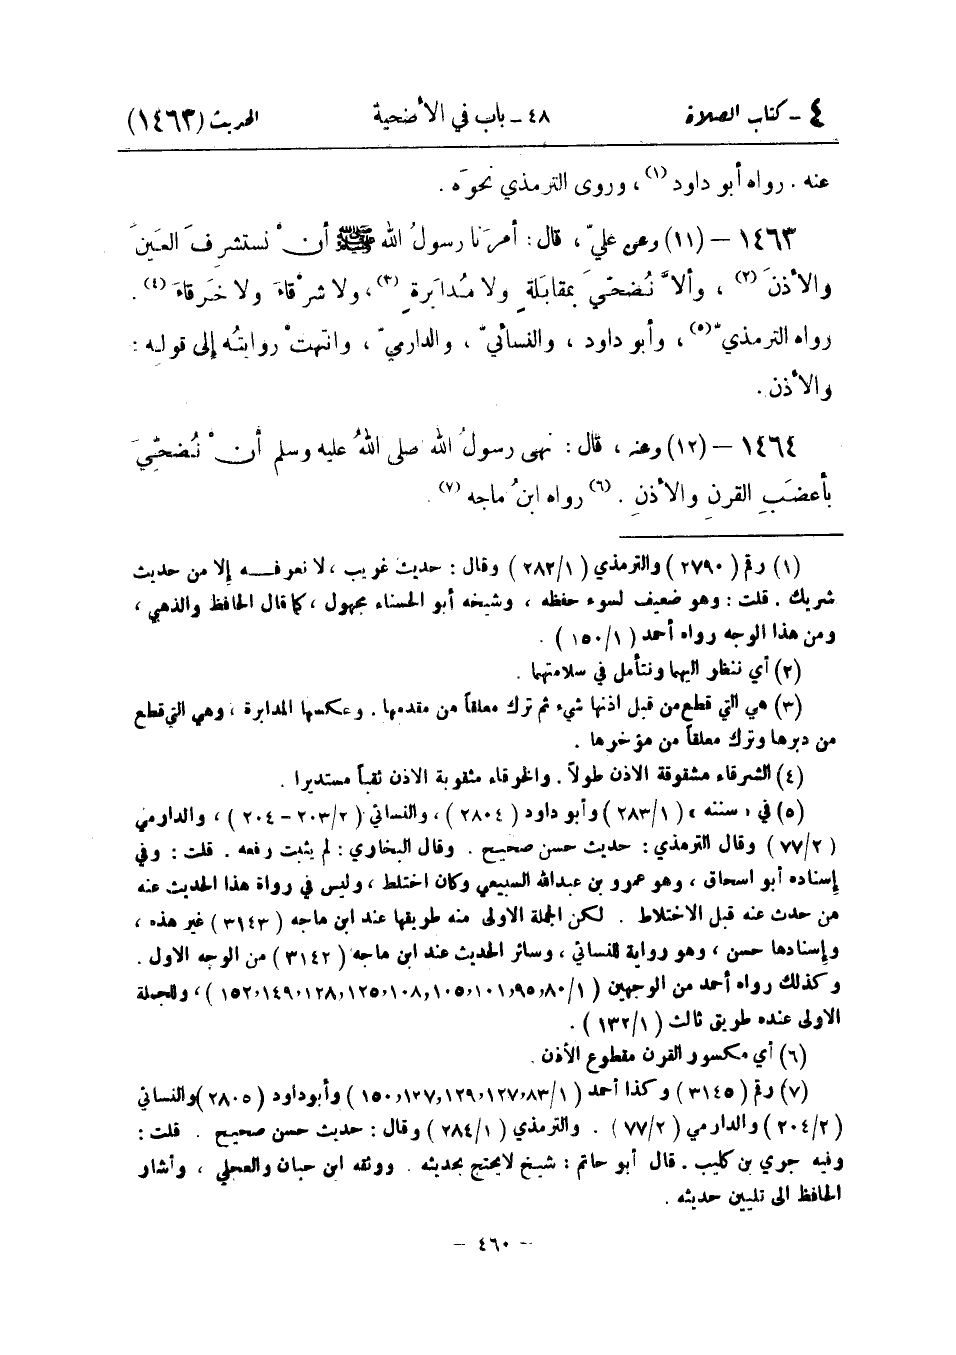 ٤ - كتاب الصلاة ٤٨ - باب في الأضحية الحديث (١٤٦٣)
عنه . رواه أبو داود (١) ، وروى الترمذي نحوَه .
١٤٦٣ - (١١) وعن عليّ ، قال : أمرَنا رسولُ الله ﷺ أنْ نستشرِفَ العَينَ
والأذنَ (٢) ، وألاَّ نُضحّيَ بمقابَلةٍ ولا مُدابَرةٍ (٣) ، ولا شرْقاءَ ولا خَرقاءَ (٤) .
رواه الترمذيّ (٥) ، وأبو داود ، والنسائيّ ، والدارميّ ، وانتهتْ روايتُه إلى قوله :
والأذن .
١٤٦٤ - (١٢) وعنه ، قال : نهى رسولُ الله صلى اللهُ عليه وسلم أنْ نُضحّيَ
بأعضَبِ القرنِ والأذنِ . (٦) رواه ابنُ ماجه (٧) .
(١) رقم (٢٧٩٠) والترمذي (١/٢٨٢) وقال : حديث غريب ، لا نعرفه إلا من حديث
شريك . قلت : وهو ضعيف لسوء حفظه ، وشيخه أبو الحسناء مجهول ، كما قال الحافظ والذهبي ،
ومن هذا الوجه رواه أحمد (١/١٥٠) .
(٢) أي ننظر اليهما ونتأمل في سلامتهما .
(٣) هي التي قطع من قبل اذنها شيء ثم ترك معلقاً من مقدمها . وعكسها المدابرة ، وهي التي قطع
من دبرها وترك معلقاً من مؤخرها .
(٤) الشرقاء مشقوقة الاذن طولاً . والخرقاء مثقوبة الاذن ثقباً مستديرا .
(٥) في « سننه » (١/٢٨٣) وأبو داود (٢٨٠٤) ، والنسائي (٢/٢٠٣ - ٢٠٤) ، والدارمي
(٢/٧٧) وقال الترمذي : حديث حسن صحيح . وقال البخاري : لم يثبت رفعه . قلت : وفي
إسناده أبو اسحاق ، وهو عمرو بن عبدالله السبيعي وكان اختلط ، وليس في رواة هذا الحديث عنه
من حدث عنه قبل الاختلاط . لكن الجملة الاولى منه طريقها عند ابن ماجه (٣١٤٣) غير هذه ،
وإسنادها حسن ، وهو رواية للنسائي ، وسائر الحديث عند ابن ماجه (٣١٤٢) من الوجه الاول .
وكذلك رواه أحمد من الوجهين (١/٨٠,٩٥,١٠١,١٠٥,١٠٨,١٢٥,١٢٨,١٤٩,١٥٢) ، وللجملة
الاولى عنده طريق ثالث (١/١٣٢) .
(٦) أي مكسور القرن مقطوع الأذن .
(٧) رقم (٣١٤٥) وكذا أحمد (١/٨٣,١٢٧,١٢٩,١٣٧,١٥٠) وأبو داود (٢٨٠٥) والنسائي
(٢/٢٠٤) والدارمي (٢/٧٧) . والترمذي (١/٢٨٤) وقال : حديث حسن صحيح . قلت :
وفيه جري بن كليب . قال أبو حاتم : شيخ لايحتج بحديثه . ووثقه ابن حبان والعجلي ، وأشار
الحافظ الى تليين حديثه .
- ٤٦٠ -